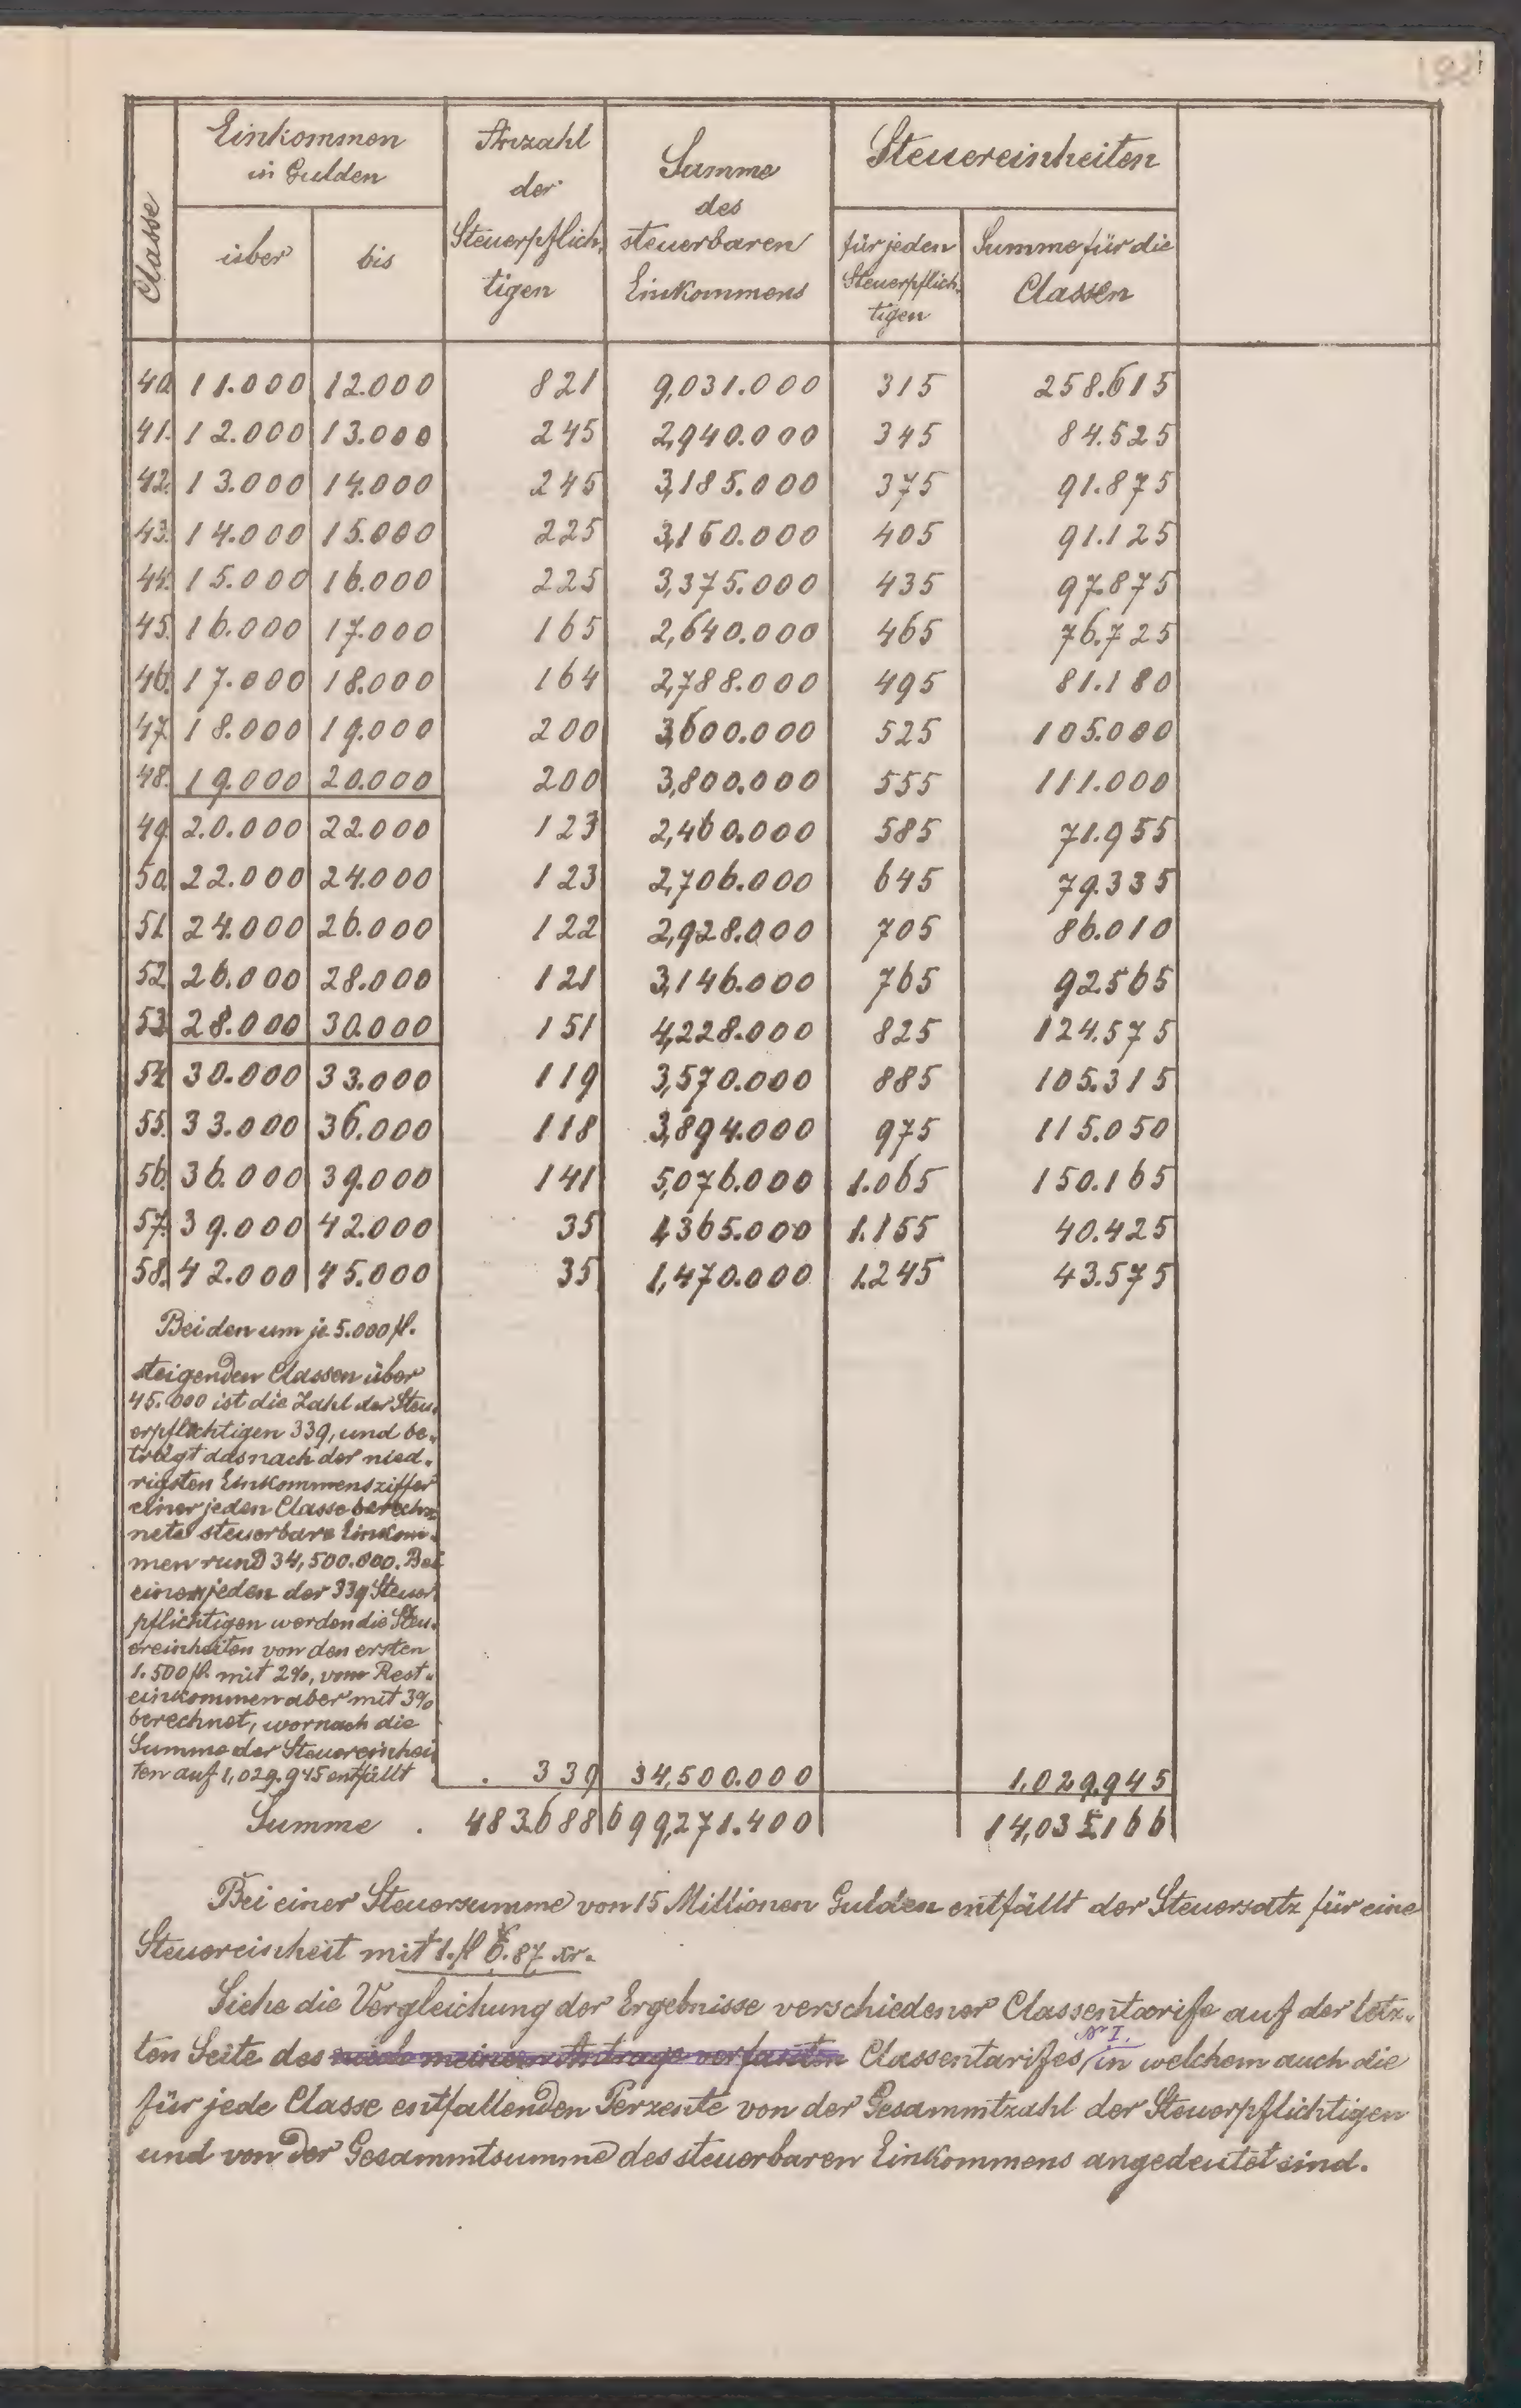 Classe
Einkommen
in Gulden
über
bis
Anzahl
der
Steuerpflich-
tigen
Summe
des
steuerbaren
Einkommens
Steuereinheiten
für jeden
Steuerpflich-
tigen
Summe für die
Classen
40. 11.000 12.000 821 9,031.000 315 258.615
41. 12.000 13.000 245 2,940.000 345 84.525
42. 13.000 14.000 245 3,185.000 375 91.875
43. 14.000 15.000 225 3,150.000 405 91.125
44. 15.000 16.000 225 3,375.000 435 97.875
45. 16.000 17.000 165 2,640.000 465 76.725
46. 17.000 18.000 164 2,788.000 495 81.180
47. 18.000 19.000 200 3,600.000 525 105.000
48. 19.000 20.000 200 3,800.000 555 111.000
49. 20.000 22.000 123 2,460.000 585 71.955
50. 22.000 24.000 123 2,706.000 645 79.335
51. 24.000 26.000 122 2,928.000 705 86.010
52. 26.000 28.000 121 3,146.000 765 92.565
53. 28.000 30.000 151 4,228.000 825 124.575
54. 30.000 33.000 119 3,570.000 885 105.315
55. 33.000 36.000 118 3,894.000 975 115.050
56. 36.000 39.000 141 5,076.000 1.065 150.165
57. 39.000 42.000 35 1,365.000 1.155 40.425
58. 42.000 45.000 35 1,470.000 1.245 43.575
Bei den um je 5.000 fl.
steigenden Classen über
45.000 ist die Zahl der Steu-
erpflichtigen 339, und be-
trägt das nach der nied-
rigsten Einkommensziffer
einer jeden Classe berech-
nete steuerbare Einkom-
men rund 34,500.000. Bei
einem jeden der 339 Steuer-
pflichtigen werden die Steu-
ereinheiten von den ersten
1.500 fl. mit 2%, vom Rest-
einkommen aber mit 3%
berechnet, wornach die
Summe der Steuereinhei-
ten auf 1,029.945 entfällt . 339 34,500.000 1,029.945
Summe . 483.688 699,271.400 14,035.166
Bei einer Steuersumme von 15 Millionen Gulden entfällt der Steuersatz für eine
Steuereinheit mit 1. fl 6.87 xr.
Siehe die Vergleichung der Ergebnisse verschiedener Classentarife auf der letz-
ten Seite des nach meinem Antrage verfaßten Classentarifes Nr I. in welchem auch die
für jede Classe entfallenden Perzente von der Gesammtzahl der Steuerpflichtigen
und von der Gesammtsumme des steuerbaren Einkommens angedeutet sind.